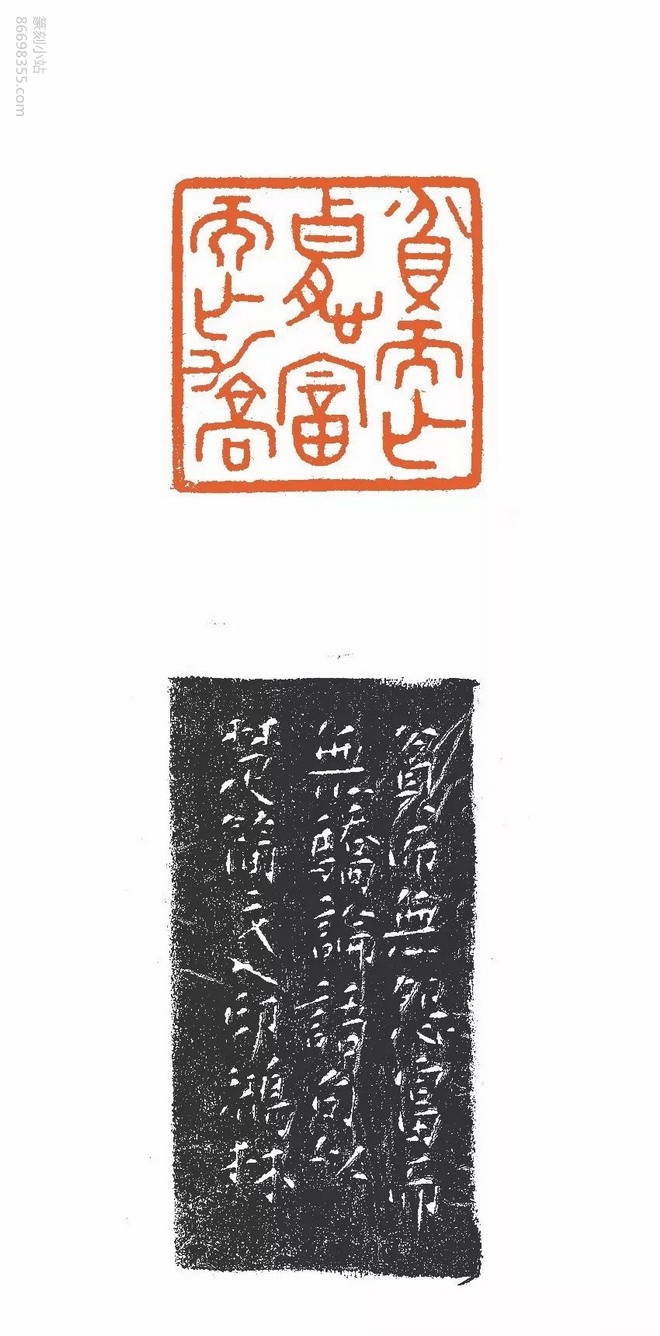 篆刻小站
86698355.com
貧而亡
悁富
而亡喬
貧而無怨富而
無驕論語句以
楚簡文入印鴻林